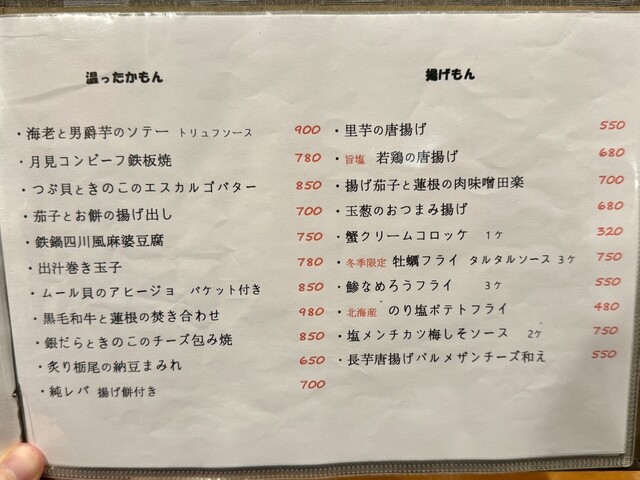 温ったかもん
・海老と男爵芋のソテー トリュフソース 900
・月見コンビーフ鉄板焼 780
・つぶ貝ときのこのエスカルゴバター 850
・茄子とお餅の揚げ出し 700
・鉄鍋四川風麻婆豆腐 750
・出汁巻き玉子 780
・ムール貝のアヒージョ バケット付き 850
・黒毛和牛と蓮根の焚き合わせ 980
・銀だらときのこのチーズ包み焼 850
・炙り栃尾の納豆まみれ 650
・純レバ 揚げ餅付き 700
揚げもん
・里芋の唐揚げ 550
・旨塩 若鶏の唐揚げ 680
・揚げ茄子と蓮根の肉味噌田楽 700
・玉葱のおつまみ揚げ 680
・蟹クリームコロッケ 1ヶ 320
・冬季限定 牡蠣フライ タルタルソース 3ヶ 750
・鯵なめろうフライ 3ヶ 550
・北海産 のり塩ポテトフライ 480
・塩メンチカツ梅しそソース 2ヶ 750
・長芋唐揚げパルメザンチーズ和え 550